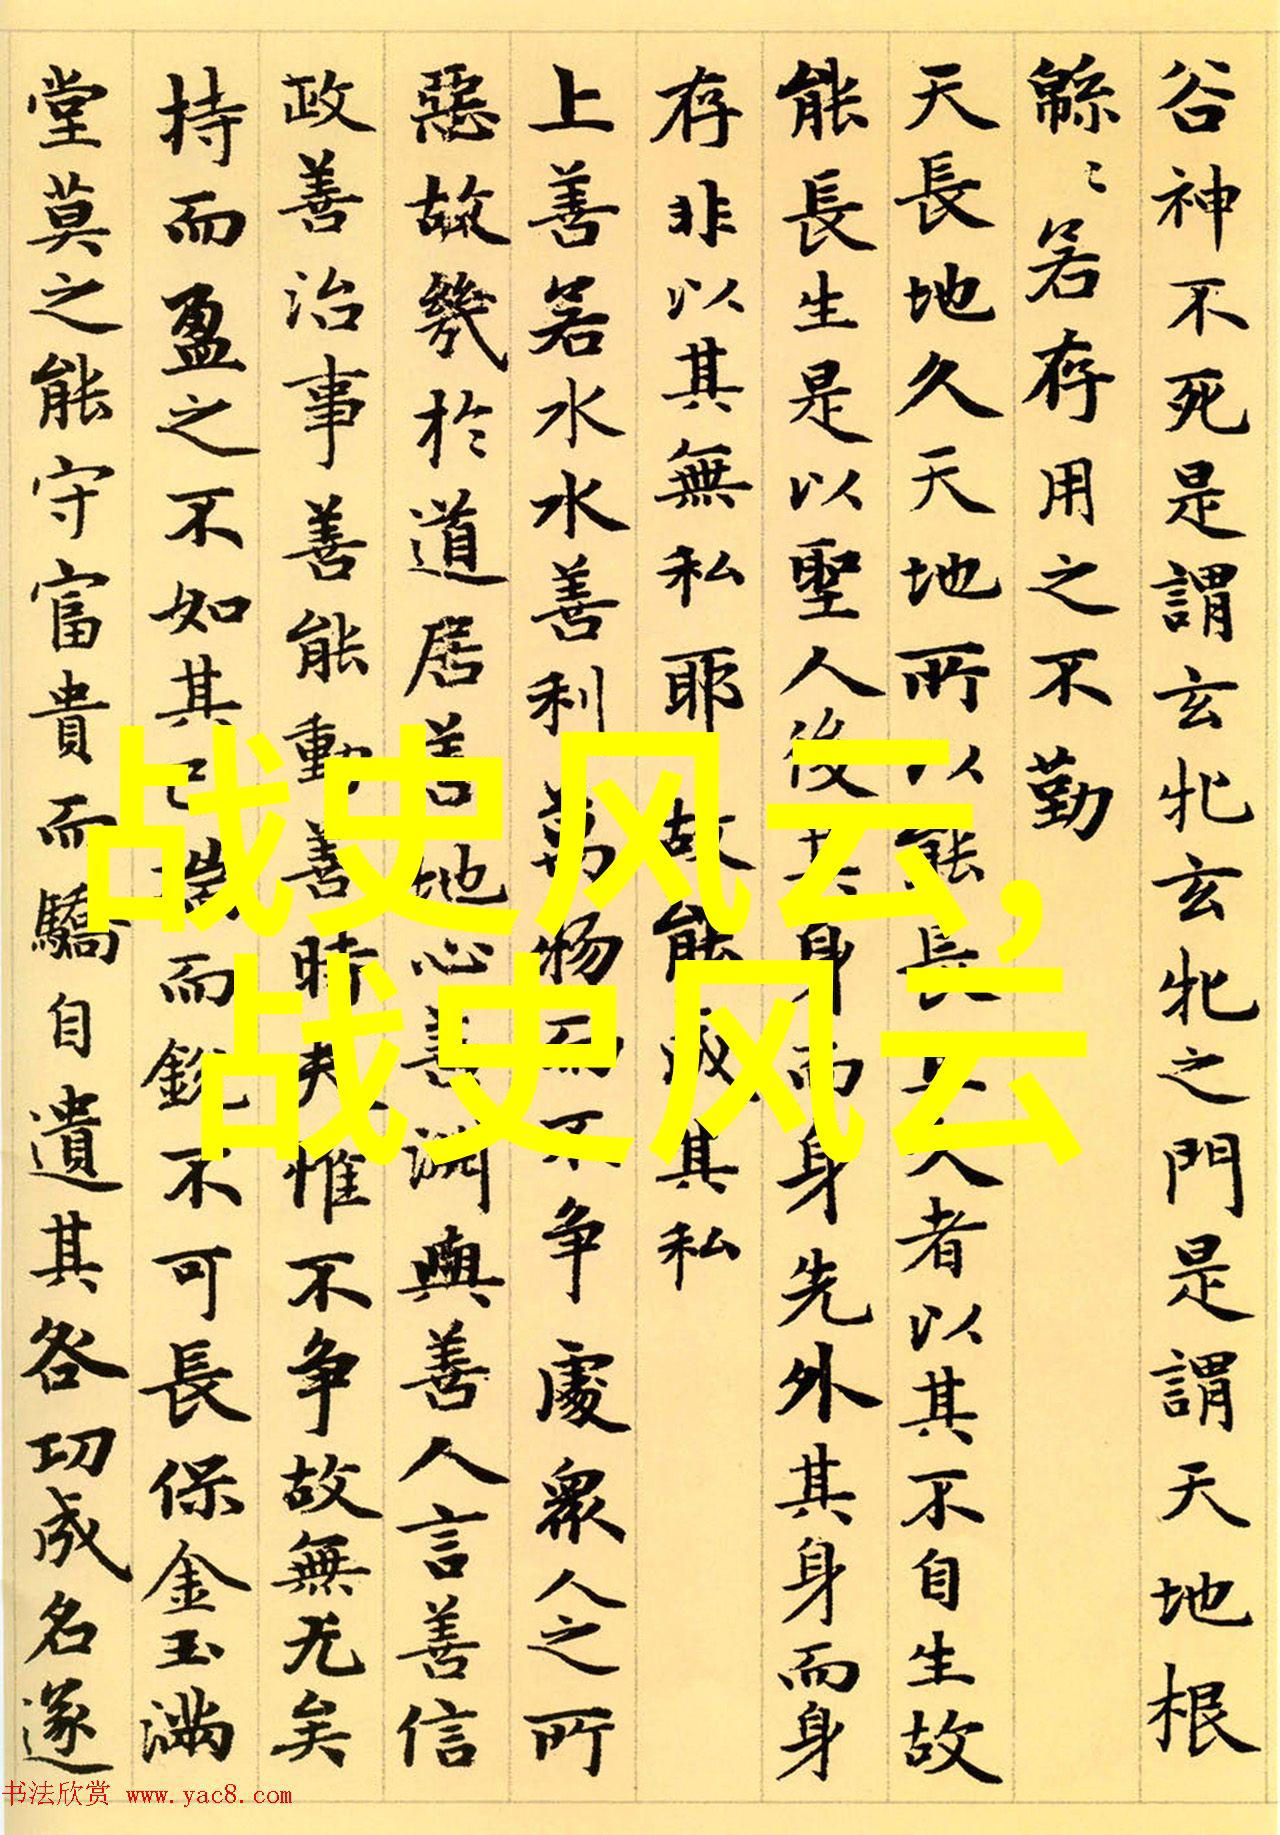 谷神不死是謂玄牝玄牝之門是謂天地根
緜〻若存用之不勤
天長地久天地所以能長且久者以其不自生故
能長生是以聖人後其身而身先外其身而身
存非以其無私耶故能成其私
上善若水水善利萬物而不争處衆人之所
惡故幾於道居善地心善渊與善人言善信
政善治事善能動善時夫惟不争故無尤矣
持而盈之不如其已揣而銳不可長保金玉滿
堂莫之能守富貴而驕自遺其咎功成名遂
战史风云,
战史风云
书法欣赏 www.yac8.com